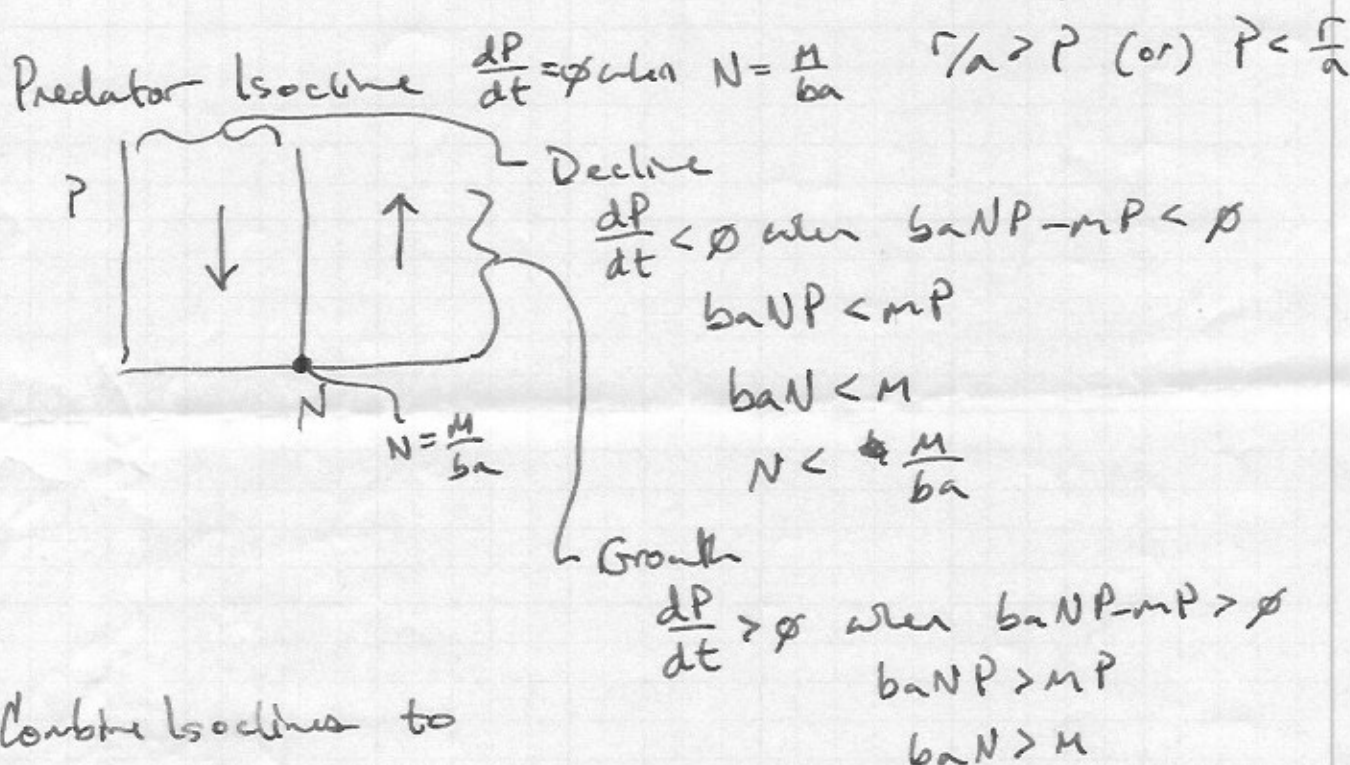 Predator Isocline dP/dt = ∅ when N = m/ba
r/a > P (or) P < r/a
P
Decline
dP/dt < ∅ when baNP - mP < ∅
baNP < mP
baN < m
N < m/ba
N
N = m/ba
Growth
dP/dt > ∅ when baNP - mP > ∅
baNP > mP
baN > m
Combine Isoclines to